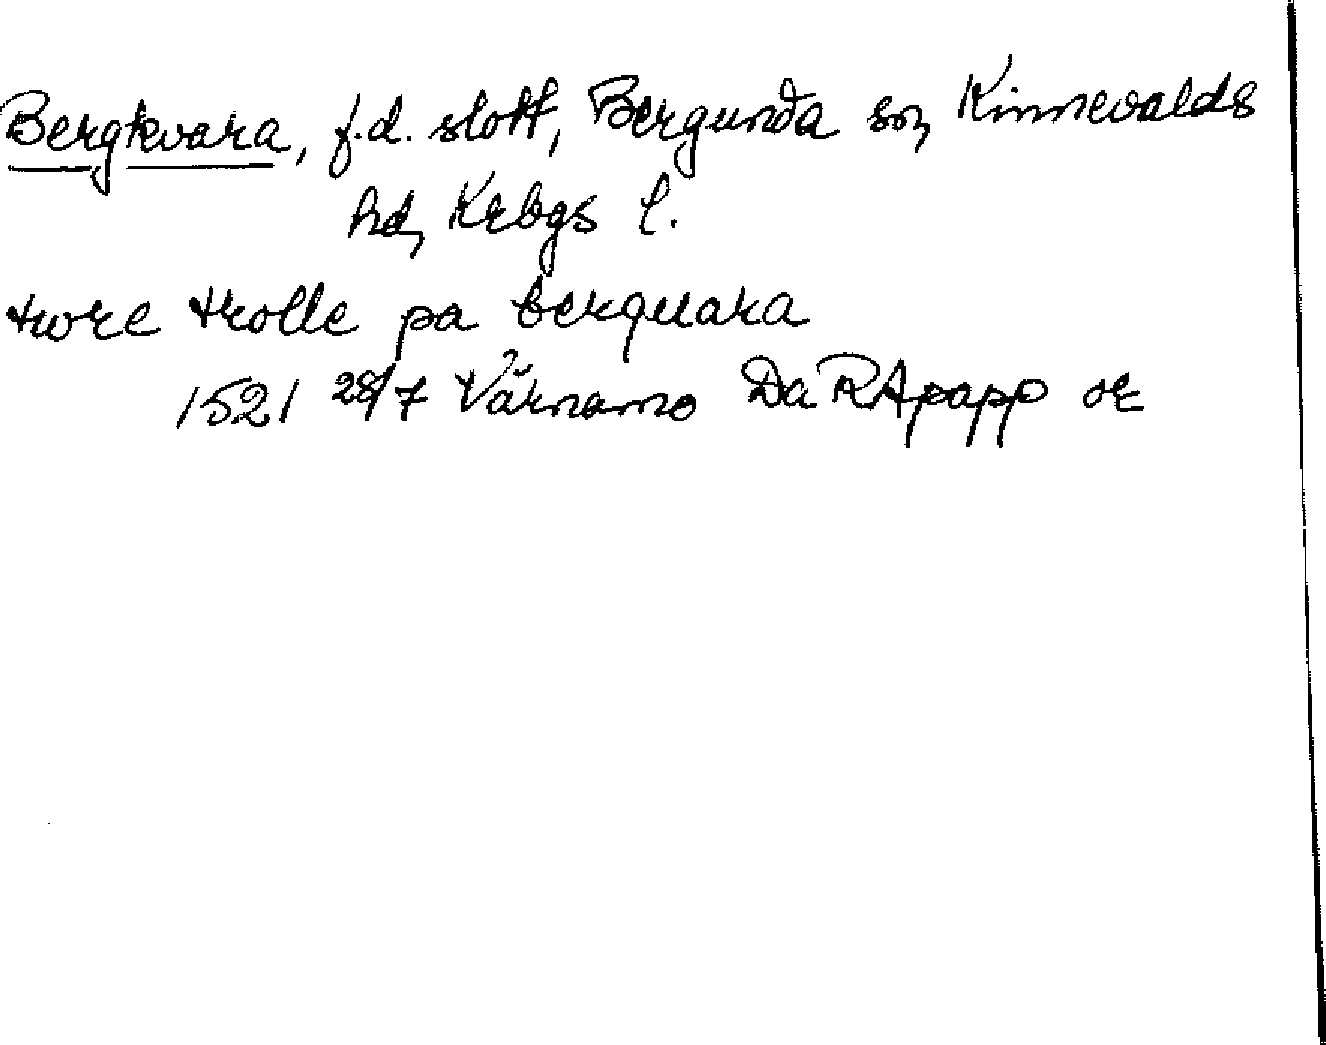 Bergkvara, f.d. slott, Bergunda sn, Kinnevalds
hd, Krbgs l.
twre trolle pa berquara
1521 28/7 Värnamo Da RApapp or